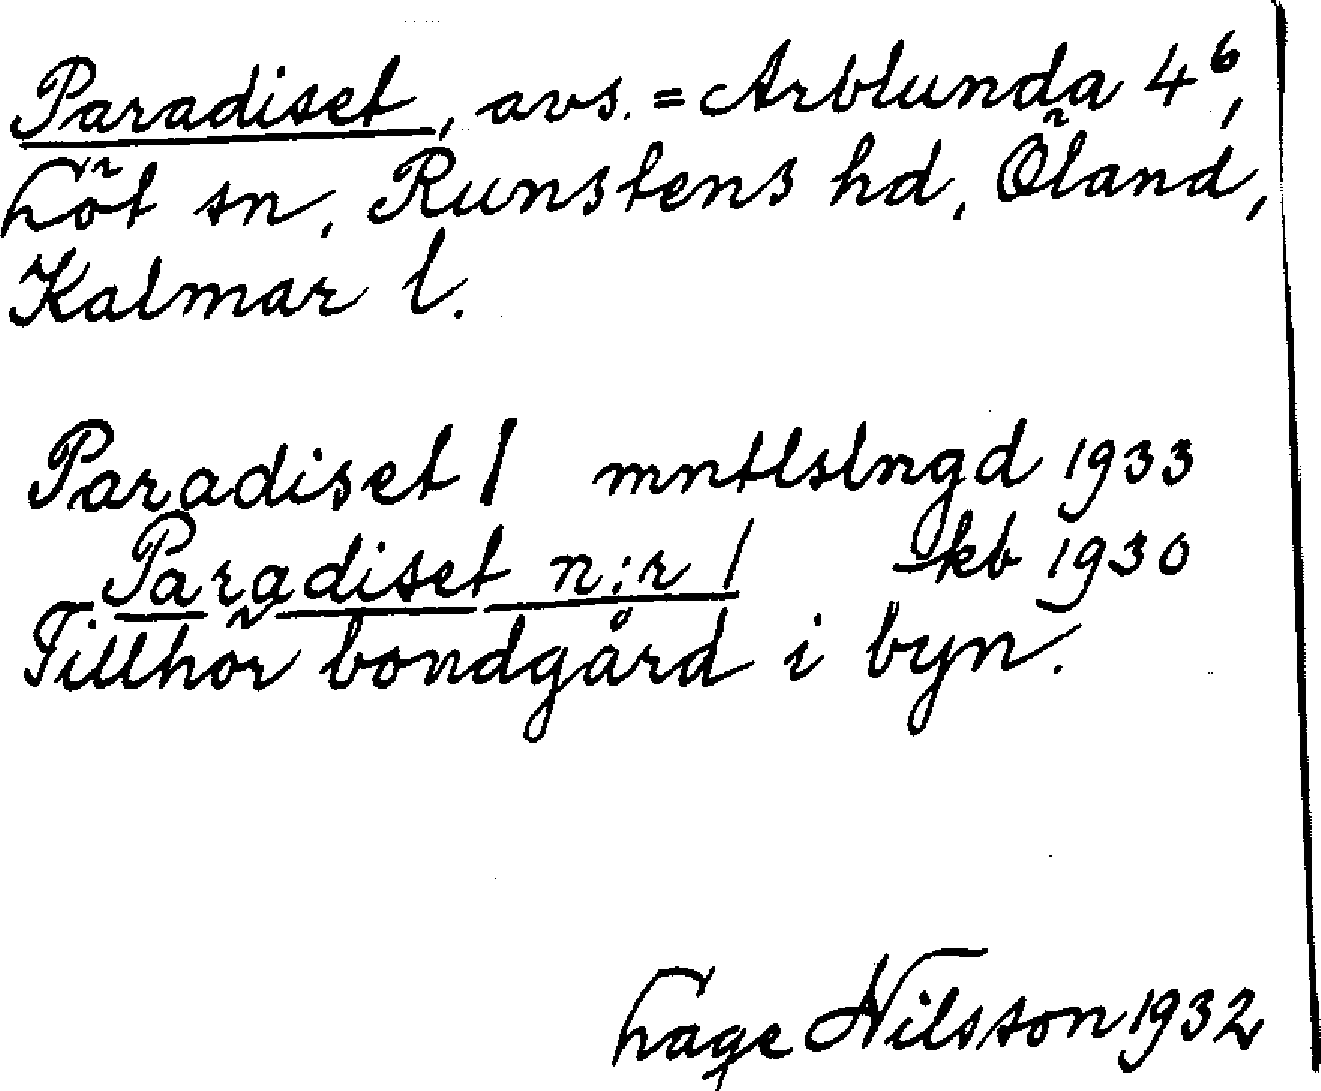 Paradiset, avs. = Arblunda 4⁶,
Löt sn, Runstens hd, Öland,
Kalmar l.
Paradiset 1 mntlslngd 1933
Paradiset n:r 1 kb 1930
Tillhör bondgård i byn.
Lage Nilsson 1932